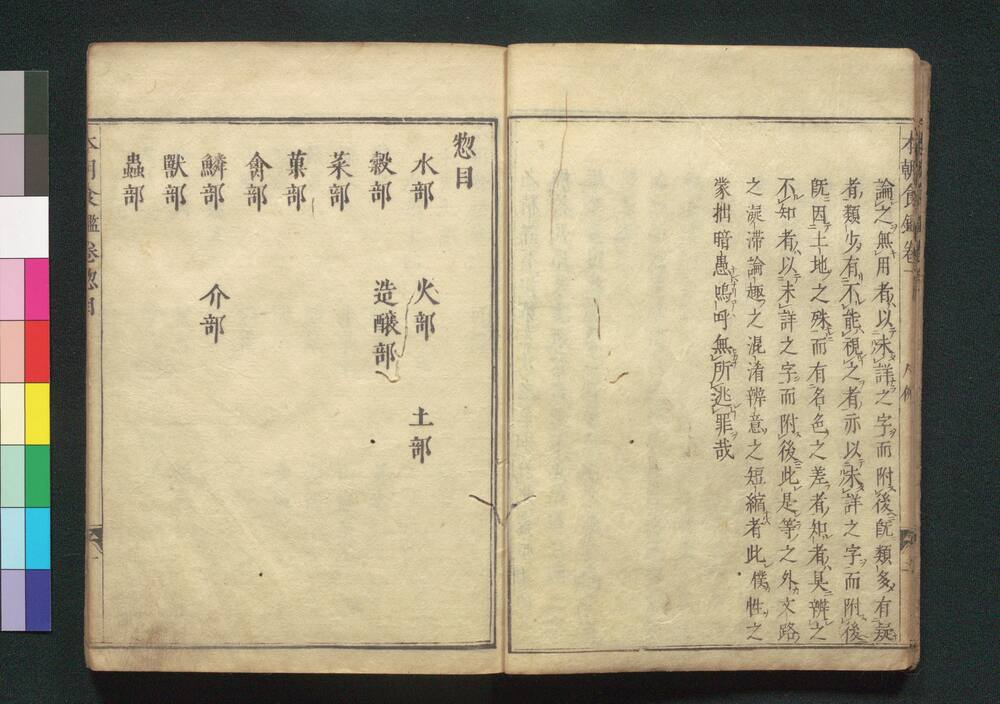 論之無用者以未詳之字而附後既類多有疑
者類少有不能視之者亦以未詳之字而附後
既因土地之殊而有名色之差者知者具辨之
不知者以未詳之字而附後此是等之外文路
之凝滯論趣之混淆辨意之短縮者此僕性之
蒙拙暗愚嗚呼無所逃罪哉
惣目
水部 火部 土部
穀部 造釀部
菜部
菓部
禽部
鱗部 介部
獸部
蟲部
本朝食鑑卷惣目